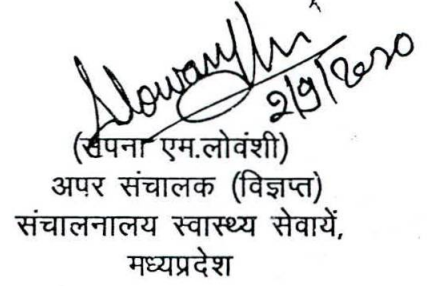 2/9/2020
(सपना एम.लोवंशी)
अपर संचालक (विज्ञप्त)
संचालनालय स्वास्थ्य सेवायें,
मध्यप्रदेश